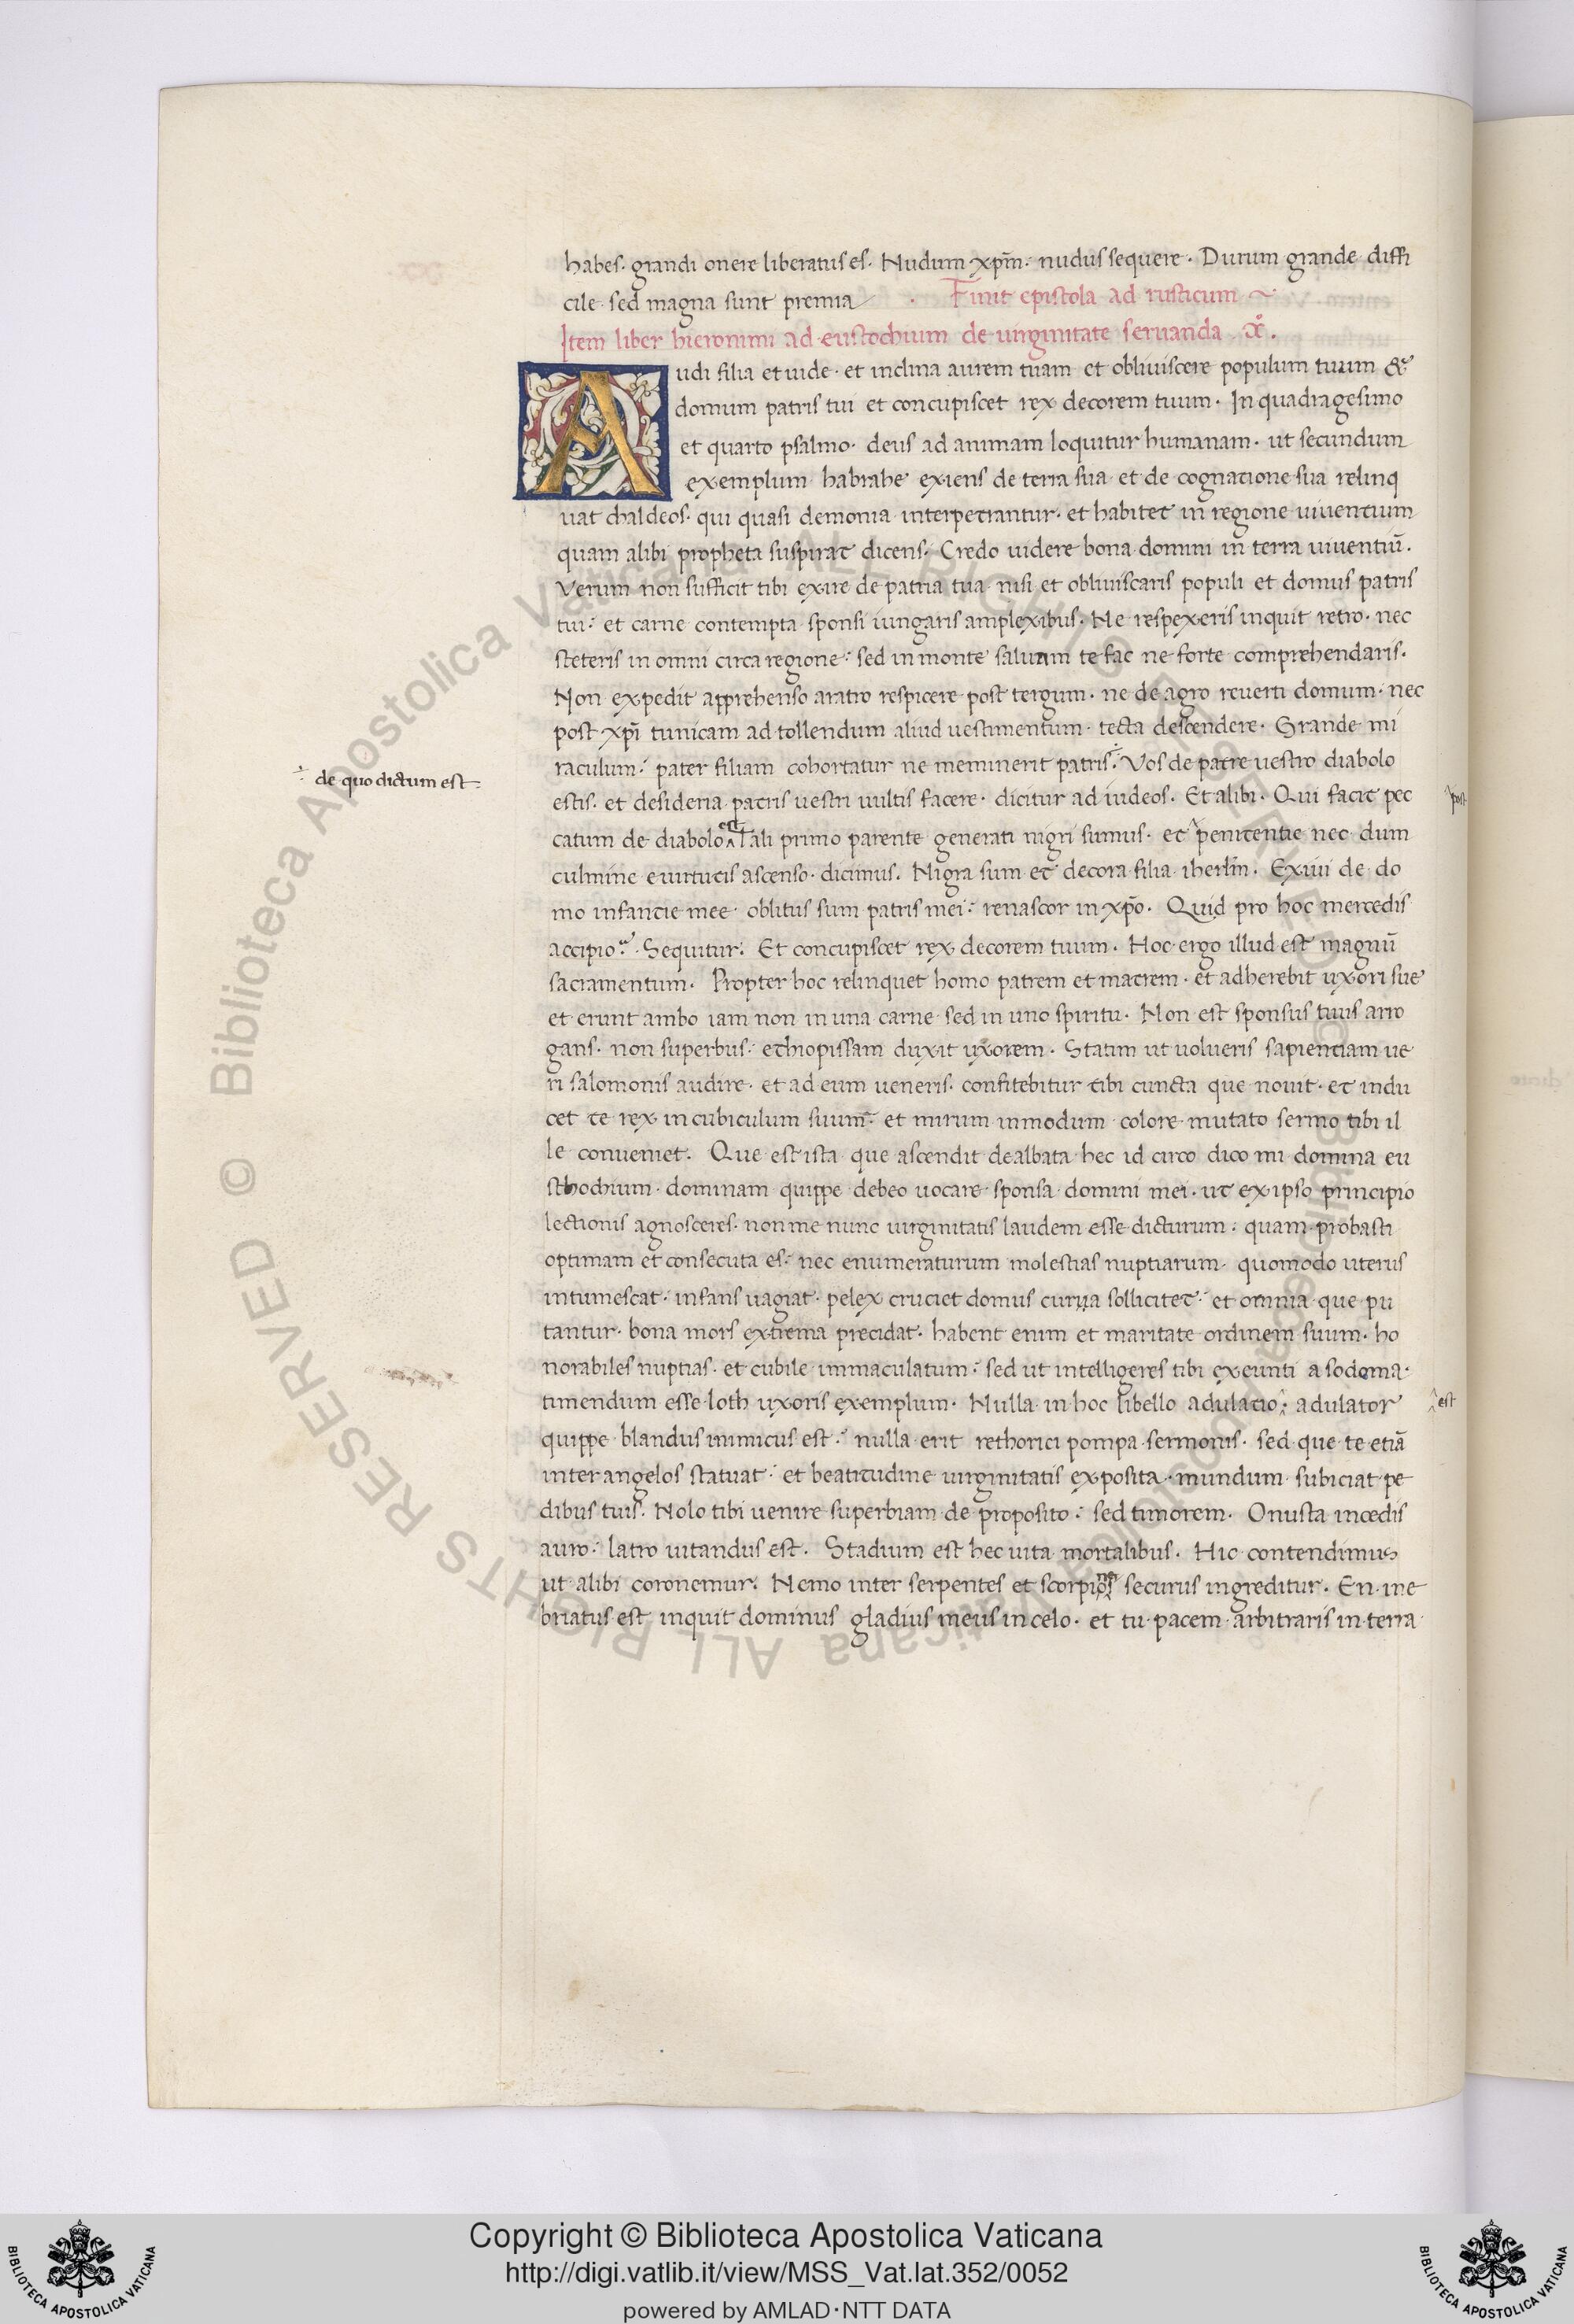 habes. grandi onere liberatus es. Nudum xp̄m. nudus sequere. Durum grande diffi
cile sed magna sunt premia. Finit epistola ad rusticum
Item liber hieronimi ad eustochium de uirginitate seruanda .x̊.
Audi filia et uide. et inclina aurem tuam et obliuiscere populum tuum &
domum patris tui et concupiscet rex decorem tuum. In quadragesimo
et quarto psalmo. deus ad animam loquitur humanam. ut secundum
exemplum habrahe exiens de terra sua et de cognatione sua relinq
uat chaldeos. qui quasi demonia interpetrantur. et habitet in regione uiuentium
quam alibi propheta suspirat dicens. Credo uidere bona domini in terra uiuentiū.
Verum non sufficit tibi exire de patria tua nisi et obliuiscaris populi et domus patris
tui: et carne contempta sponsi iungaris amplexibus. Ne respexeris inquit retro. nec
steteris in omni circa regione: sed in monte saluum te fac ne forte comprehendaris.
Non expedit apprehenso aratro respicere post tergum. ne de agro reuerti domum. nec
post xp̄i tunicam ad tollendum aliud uestimentum. tecta descendere. Grande mi
raculum: pater filiam cohortatur ne meminerit patris: Vos de patre uestro diabolo
de quo dictum est
estis. et desideria patris uestri uultis facere. dicitur ad iudeos. Et alibi. Qui facit pec
post
catum de diabolo est Tali primo parente generati nigri sumus. et penitentie nec dum
culmine euirtutis ascenso. dicimus. Nigra sum et decora filia iherl̄m. Exiui de do
mo infantie mee. oblitus sum patris mei: renascor in xp̄o. Quid pro hoc mercedis
accipio? Sequitur. Et concupiscet rex decorem tuum. Hoc ergo illud est magnū
sacramentum. Propter hoc relinquet homo patrem et matrem. et adherebit uxori sue
et erunt ambo iam non in una carne sed in uno spiritu. Non est sponsus tuus arro
gans. non superbus: ethiopissam duxit uxorem. Statim ut uolueris sapientiam ue
ri salomonis audire. et ad eum ueneris. confitebitur tibi cuncta que nouit. et indu
cet te rex in cubiculum suum: et mirum inmodum colore mutato sermo tibi il
le conueniet. Que est ista que ascendit dealbata hec id circo dico mi domina eu
sthochium. dominam quippe debeo uocare sponsa domini mei. ut ex ipso principio
lectionis agnosceres. non me nunc uirginitatis laudem esse dicturum: quam probasti
optimam et consecuta es: nec enumeraturum molestias nuptiarum. quomodo uterus
intumescat. infans uagiat. pelex cruciet domus curua sollicitet: et omnia que pu
tantur. bona mors extrema precidat. habent enim et maritate ordinem suum. ho
norabiles nuptias. et cubile immaculatum: sed ut intelligeres tibi exeunti a sodoma.
timendum esse loth uxoris exemplum. Nulla in hoc libello adulatio: adulator
est
quippe blandus inimicus est: nulla erit rethorici pompa sermonis. sed que te etiā
inter angelos statuat: et beatitudine uirginitatis exposita. mundum subiciat pe
dibus tuis. Nolo tibi uenire superbiam de proposito: sed timorem. Onusta incedis
auro: latro uitandus est. Stadium est hec uita mortalibus. Hic contendimus
ut alibi coronemur. Nemo inter serpentes et scorpiones securus ingreditur. En ine
briatus est inquit dominus gladius meus in celo. et tu pacem arbitraris in terra
Copyright © Biblioteca Apostolica Vaticana
http://digi.vatlib.it/view/MSS_Vat.lat.352/0052
powered by AMLAD·NTT DATA
BIBLIOTECA APOSTOLICA VATICANA
BIBLIOTECA APOSTOLICA VATICANA
© Biblioteca Apostolica Vaticana ALL RIGHTS RESERVED © Biblioteca Apostolica Vaticana ALL RIGHTS RESERVED